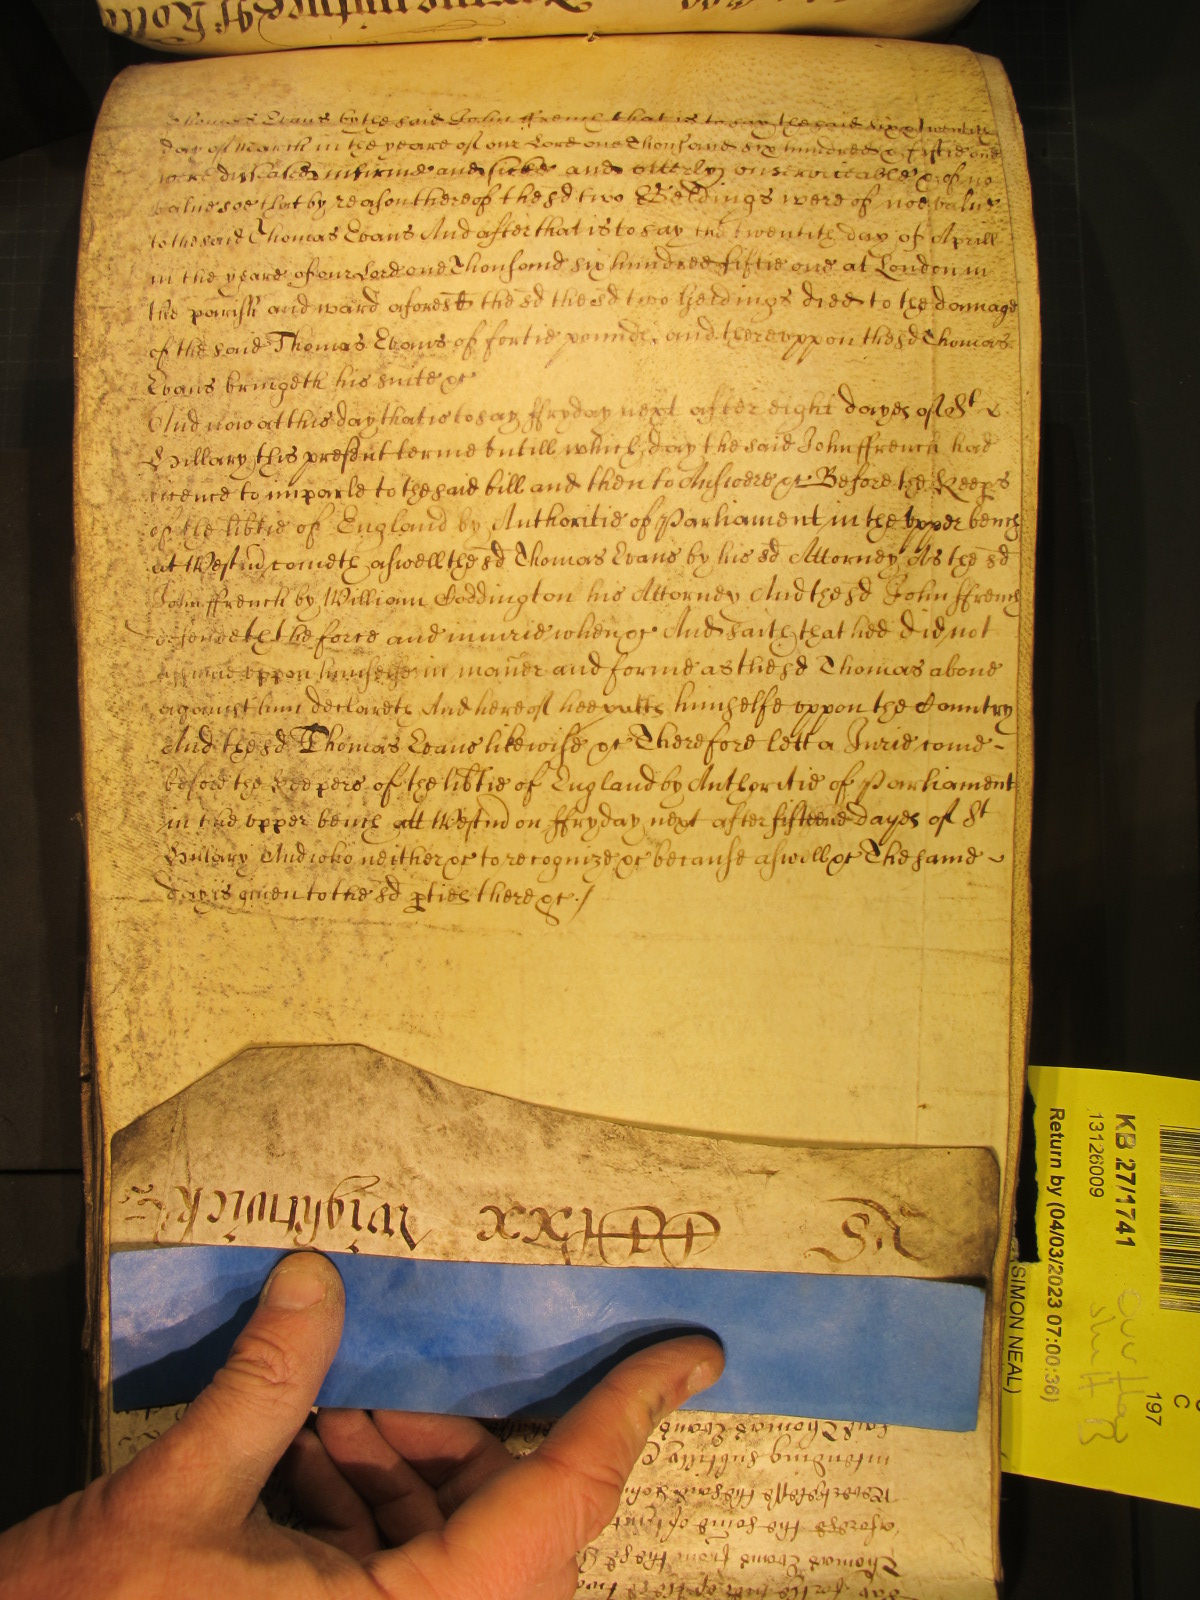 Thomas Evans by the said John ffrench that is to say the said six & twentith
day of March in the yeare of our Lord one Thousand six hundred & fiftie one
were diseased infirme and sicke and vtterly vnserviceable & of no
value soe that by reason thereof the sd two Geldings were of noe value
to the said Thomas Evans And after that is to say the twentith day of Aprill
in the yeare of our Lord one Thousand six hundred fiftie one at London in
the parish and ward aforesd the sd the sd two Geldings died to the damage
of the said Thomas Evans of fortie pounds, and therevppon the sd Thomas
Evans bringeth his suite &c
And now at this day that is to say ffryday next after eight dayes of St
Hillary this present terme vntill which day the said John ffrench had
licence to imparle to the said bill and then to Answere &c Before the Keeps
of the libtie of England by Authoritie of Parliament in the vpper bench
at Westm cometh aswell the sd Thomas Evans by his sd Attorney As the sd
John ffrench by William Coddington his Attorney And the sd John ffrench
defendeth the force and iniurie when &c And saith that hee did not
assume vppon himselfe in maner and forme as the sd Thomas aboue
against him declareth And hereof hee putts himselfe vppon the Country
And the sd Thomas Evans likewise &c Therefore lett a Iurie come -
before the Keepers of the libtie of England by Authoritie of Parliament
in the vpper bench att Westm on ffryday next after fifteene Dayes of St
Hillary And who neither &c to recognize &c because aswell &c The same
day is giuen to the sd pties there &c ./
Wightwick
KB 27/1741
13126009
Return by (04/03/2023 07:00:36)
(SIMON NEAL)
197
C
said Thomas Evans
intending subtilly
Neverthelesse the said John
aforesd the some of
Thomas Evans from the sd